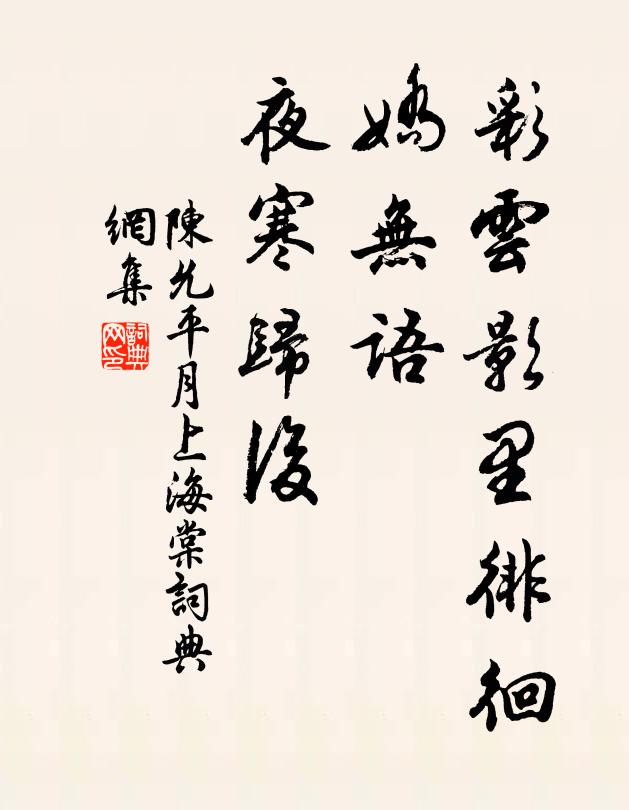 彩雲影里徘徊
嬌無語
夜寒歸後
陳允平月上海棠詞典
網集
詞典網印